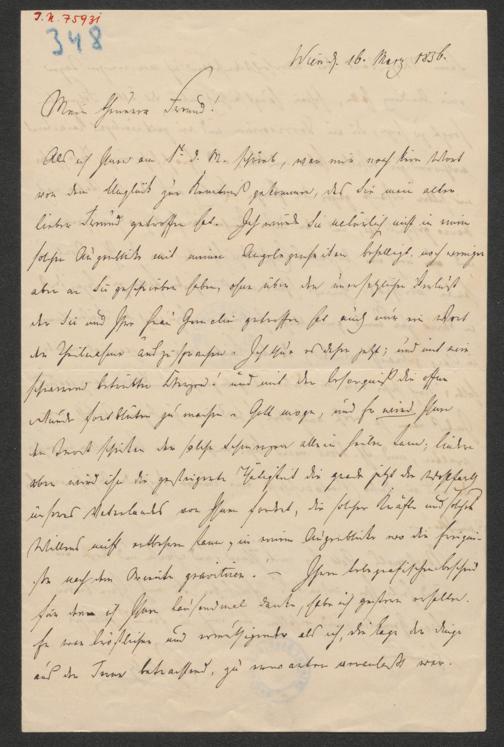 J.N. 75931
348
Wien d. 16. März 1856.
Mein theurer Freund!
Als ich Ihnen am 1t. d. M. schrieb, war mir noch kein Wort
von dem Unglück zur Kenntniß gekommen, das Sie mein alter
lieber Freund getroffen hat. Ich würde Sie natürlich nicht in einem
solchen Augenblicke mit meinen Angelegenheiten behelligt, noch weniger
aber an Sie geschrieben haben, ohne über den unersetzlichen Verlust
der Sie und Ihre Frau Gemalin getroffen hat auch nur ein Wort
der Theilnahme auszusprechen. Ich thue es daher jetzt; und mit
betrübten Herzen! und mit der Besorgniß die offne
Wunde fortbluten zu machen. Gott möge, und Er wird Ihnen
den Trost schicken der solche Schmerzen allein heilen kann; lindern
aber wird sie die gesteigerte Thätigkeit die grade jetzt die Wohlfart
unseres Vaterlandes von Ihnen fordert, die solcher Kräfte und solchen
Willens nicht entbehren kann, in einem Augenblicke wo die
nach dem Oriente gravitiren. — Ihren telegrafischen Bescheid
für den ich Ihnen tausendmal danke, habe ich gestern erhalten.
Er war tröstlicher und als ich, die Lage der Dinge
aus der Ferne betrachtend, zu erwarten veranlaßt war.